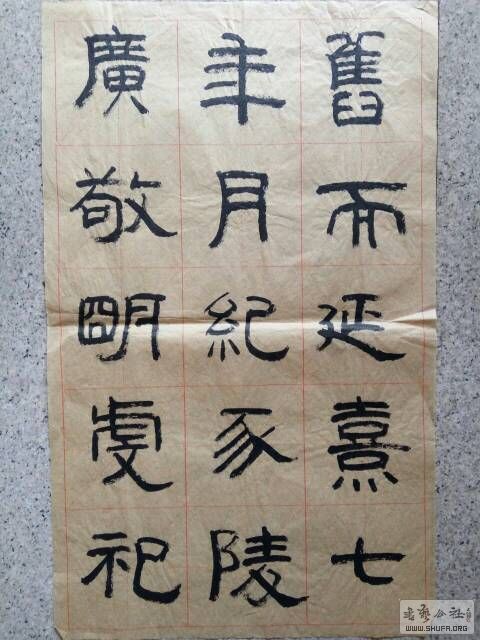 舊而延熹七
年月紀豕陵
廣敬朙虔祀
书藝公社
WWW.SHUFA.ORG